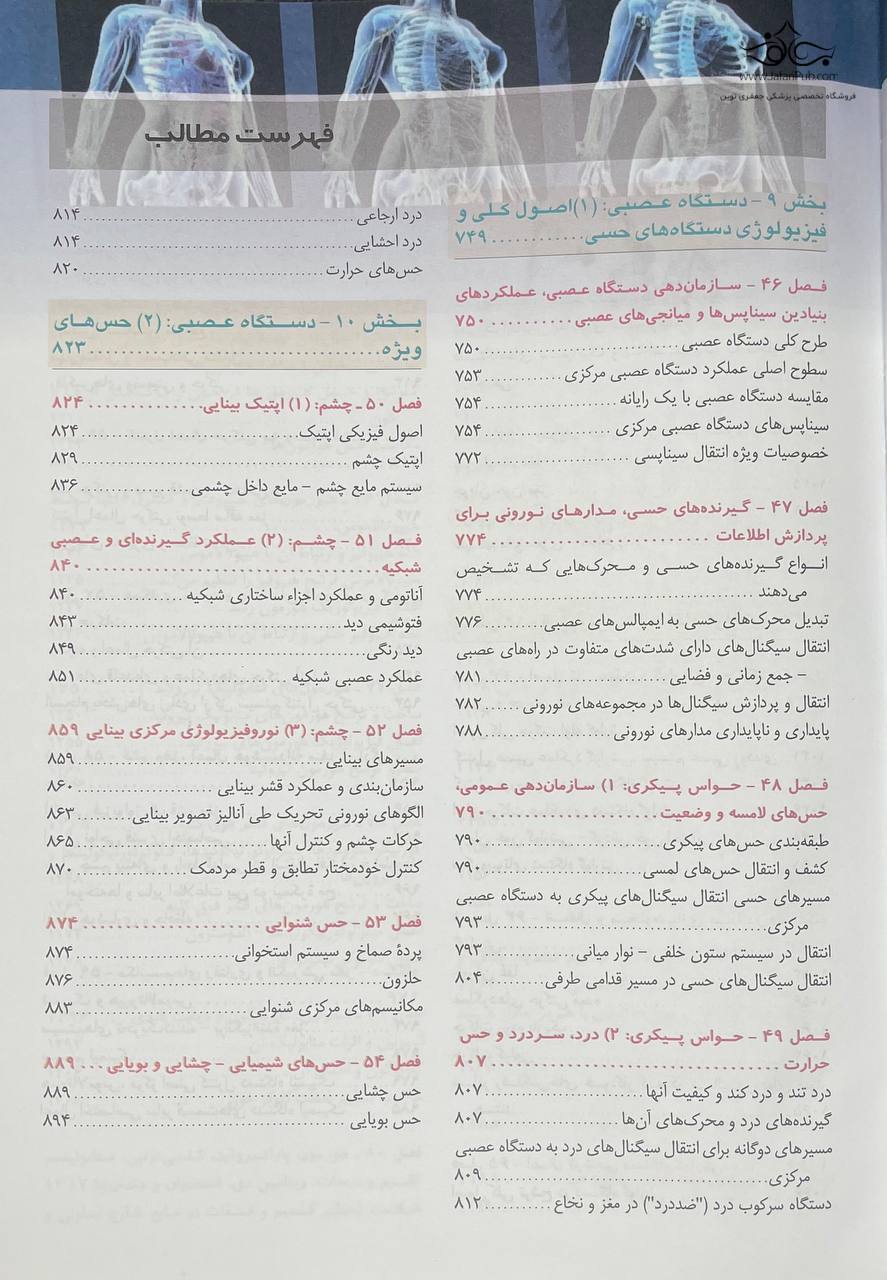 www.JafariPub.com
فروشگاه تخصصی پزشکی جعفری نوین
فهرست مطالب
بخش ۹ – دستگاه عصبی: (۱)اصول کلی و
فیزیولوژی دستگاه‌های حسی............ ۷۴۹
فصل ۴۶ – سازمان‌دهی دستگاه عصبی، عملکردهای
بنیادین سیناپس‌ها و میانجی‌های عصبی .......... ۷۵۰
طرح کلی دستگاه عصبی ............................ ۷۵۰
سطوح اصلی عملکرد دستگاه عصبی مرکزی ............ ۷۵۳
مقایسه دستگاه عصبی با یک رایانه .................. ۷۵۴
سیناپس‌های دستگاه عصبی مرکزی .................. ۷۵۴
خصوصیات ویژه انتقال سیناپسی .................... ۷۷۲
فصل ۴۷ – گیرنده‌های حسی، مدارهای نورونی برای
پردازش اطلاعات .......................... ۷۷۴
انواع گیرنده‌های حسی و محرک‌هایی که تشخیص
می‌دهند ..................................... ۷۷۴
تبدیل محرک‌های حسی به ایمپالس‌های عصبی.......... ۷۷۶
انتقال سیگنال‌های دارای شدت‌های متفاوت در راه‌های عصبی
– جمع زمانی و فضایی ............................ ۷۸۱
انتقال و پردازش سیگنال‌ها در مجموعه‌های نورونی ...... ۷۸۲
پایداری و ناپایداری مدارهای نورونی .................. ۷۸۸
فصل ۴۸ – حواس پیکری: ۱) سازمان‌دهی عمومی،
حس‌های لامسه و وضعیت .................... ۷۹۰
طبقه‌بندی حس‌های پیکری .......................... ۷۹۰
کشف و انتقال حس‌های لمسی........................ ۷۹۰
مسیرهای حسی انتقال سیگنال‌های پیکری به دستگاه عصبی
مرکزی...................................... ۷۹۳
انتقال در سیستم ستون خلفی – نوار میانی ............ ۷۹۳
انتقال سیگنال‌های حسی در مسیر قدامی طرفی .......... ۸۰۴
فصل ۴۹ – حواس پیکری: ۲) درد، سردرد و حس
حرارت .................................. ۸۰۷
درد تند و درد کند و کیفیت آنها ...................... ۸۰۷
گیرنده‌های درد و محرک‌های آن‌ها .................... ۸۰۷
مسیرهای دوگانه برای انتقال سیگنال‌های درد به دستگاه عصبی
مرکزی...................................... ۸۰۹
دستگاه سرکوب درد ("ضددرد") در مغز و نخاع .......... ۸۱۲
درد ارجاعی .................................. ۸۱۴
درد احشایی.................................. ۸۱۴
حس‌های حرارت ................................ ۸۲۰
بخش ۱۰ – دستگاه عصبی: (۲) حس‌های
ویژه ................................. ۸۲۳
فصل ۵۰ ـ چشم: (۱) اپتیک بینایی.............. ۸۲۴
اصول فیزیکی اپتیک.............................. ۸۲۴
اپتیک چشم .................................. ۸۲۹
سیستم مایع چشم – مایع داخل چشمی ................ ۸۳۶
فصل ۵۱ – چشم: (۲) عملکرد گیرنده‌ای و عصبی
شبکیه .................................. ۸۴۰
آناتومی و عملکرد اجزاء ساختاری شبکیه .............. ۸۴۰
فتوشیمی دید.................................. ۸۴۳
دید رنگی.................................... ۸۴۹
عملکرد عصبی شبکیه ............................ ۸۵۱
فصل ۵۲ – چشم: (۳) نوروفیزیولوژی مرکزی بینایی ۸۵۹
مسیرهای بینایی................................ ۸۵۹
سازمان‌بندی و عملکرد قشر بینایی .................. ۸۶۰
الگوهای نورونی تحریک طی آنالیز تصویر بینایی........ ۸۶۳
حرکات چشم و کنترل آنها ........................ ۸۶۵
کنترل خودمختار تطابق و قطر مردمک ................ ۸۷۰
فصل ۵۳ – حس شنوایی ...................... ۸۷۴
پردهٔ صماخ و سیستم استخوانی .................... ۸۷۴
حلزون...................................... ۸۷۶
مکانیسم‌های مرکزی شنوایی ........................ ۸۸۳
فصل ۵۴ – حس‌های شیمیایی – چشایی و بویایی ... ۸۸۹
حس چشایی.................................. ۸۸۹
حس بویایی .................................. ۸۹۴